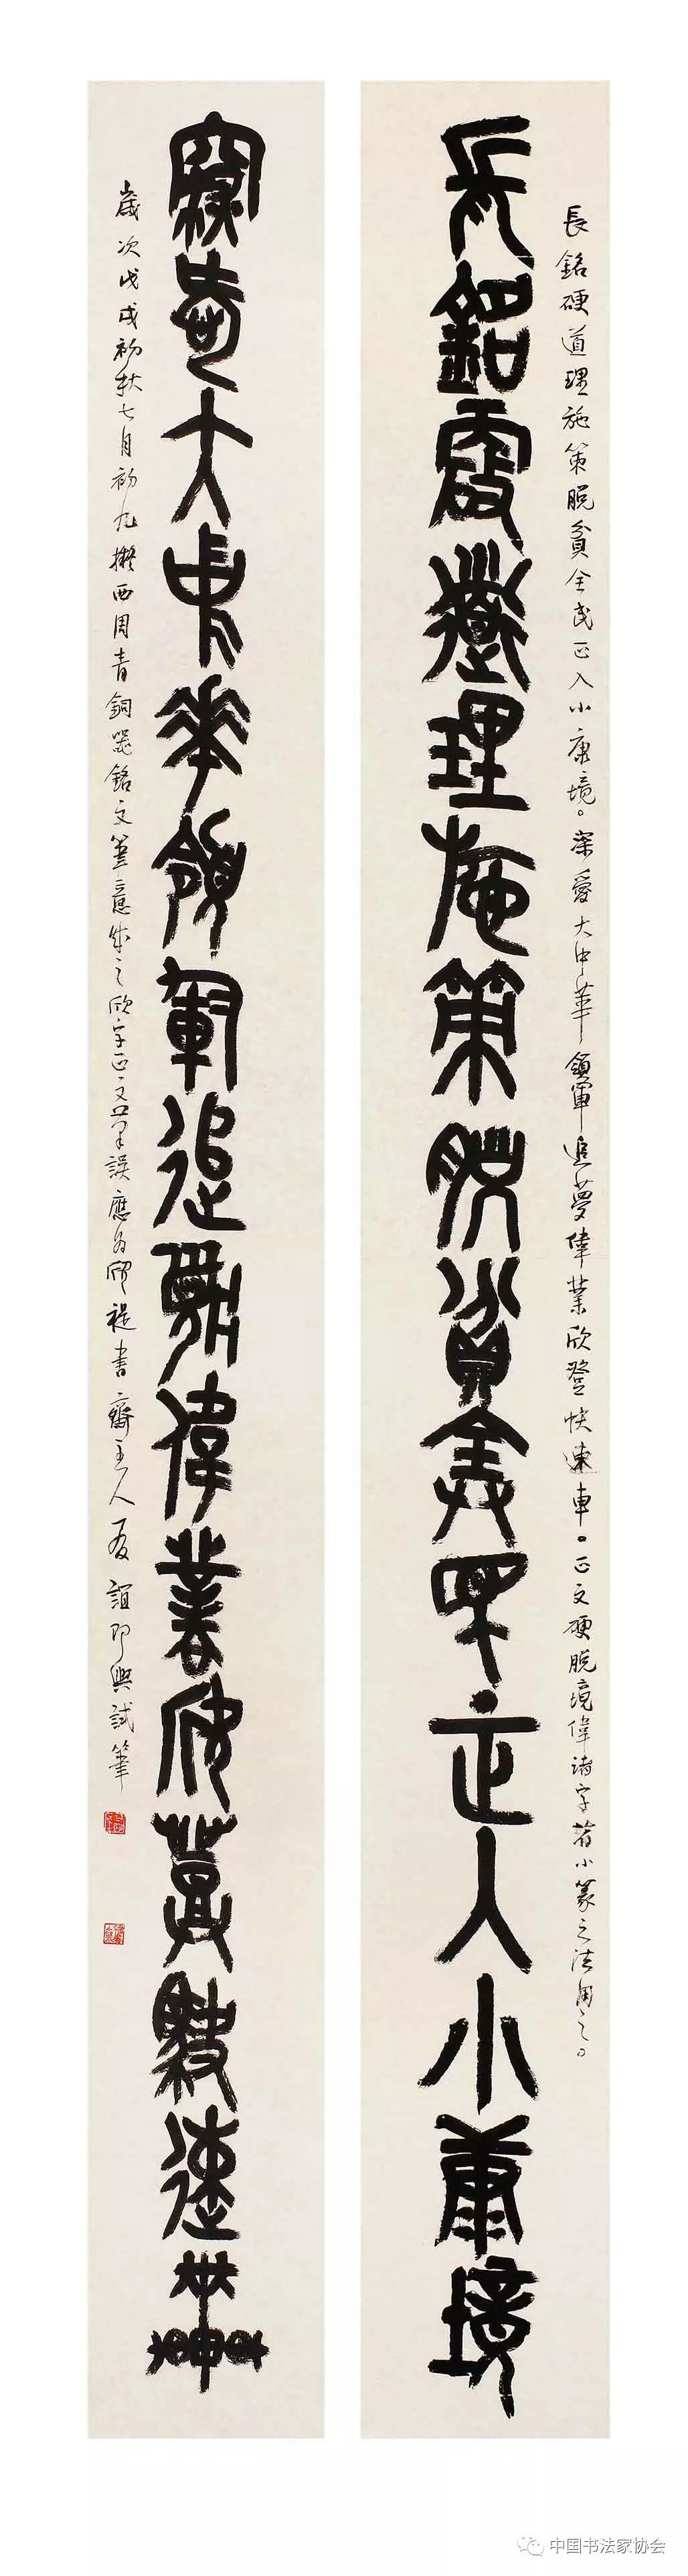 長銘硬道理施策脫貧全民正入小康境
深愛大中華領軍追夢偉業欣登快速車
長銘硬道理施策脫貧全民正入小康境。深愛大中華領軍追夢偉業欣登快速車。正文硬脫境偉諸字著小篆之法用之。
歲次戊戌初秋七月初九擬西周青銅器銘文筆意成之欣字正文筆誤應為
書齋主人友誼即興試筆
中国书法家协会